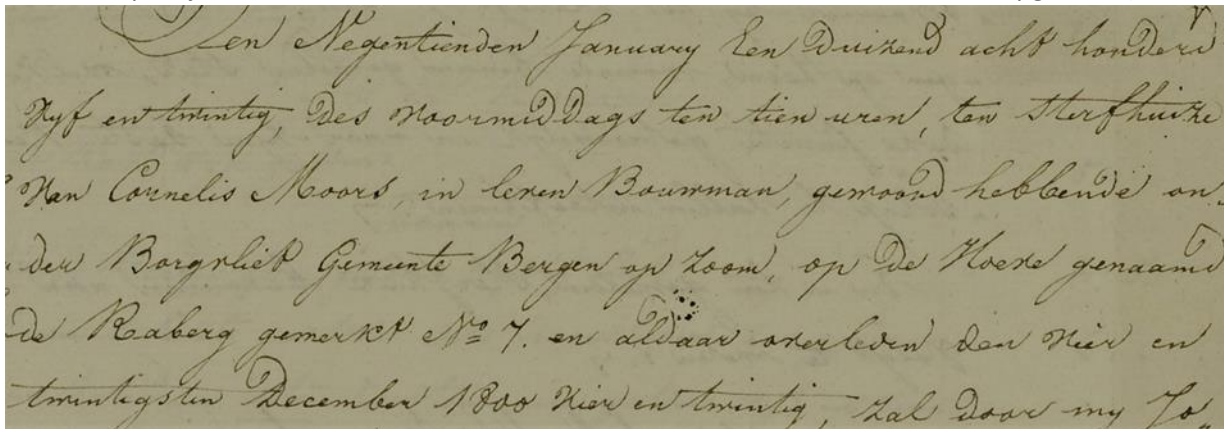 Den Negentienden January Een Duizend acht honderd
Vyf en twintig, des Voormiddags ten tien uren, ten Sterfhuize
Van Cornelis Moors, in leven Bouwman, gewoond hebbende on„
der Borgvliet Gemeente Bergen op Zoom, op de Hoeve genaamd
de Raberg gemerkt No 7. en aldaar overleden den Vier en
twintigsten December 1800 Vier en twintig, zal door my Jo„